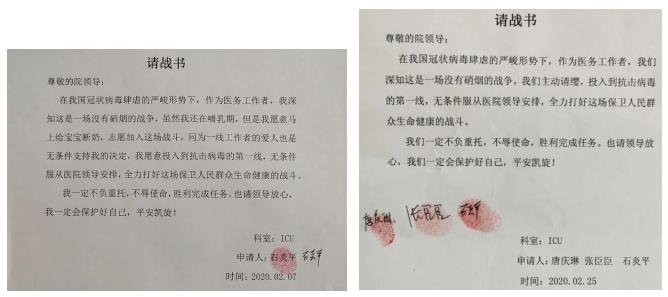 请战书
尊敬的院领导：
在我国冠状病毒肆虐的严峻形势下，作为医务工作者，我深
知这是一场没有硝烟的战争，虽然我还在哺乳期，但是我愿意马
上给宝宝断奶，志愿加入这场战斗，同为一线工作者的爱人也是
无条件支持我的决定，我愿意投入到抗击病毒的第一线，无条件
服从医院领导安排，全力打好这场保卫人民群众生命健康的战斗。
我一定不负重托，不辱使命，胜利完成任务。也请领导放心，
我一定会保护好自己，平安凯旋！
科室：ICU
申请人：石炎平 石炎平
时间：2020.02.07
请战书
尊敬的院领导：
在我国冠状病毒肆虐的严峻形势下，作为医务工作者，我们
深知这是一场没有硝烟的战争，我们主动请缨，投入到抗击病毒
的第一线，无条件服从医院领导安排，全力打好这场保卫人民群
众生命健康的战斗。
我们一定不负重托，不辱使命，胜利完成任务。也请领导放
心，我们一定会保护好自己，平安凯旋！
唐庆琳 张臣臣 石炎平
科室：ICU
申请人：唐庆琳 张臣臣 石炎平
时间：2020.02.25